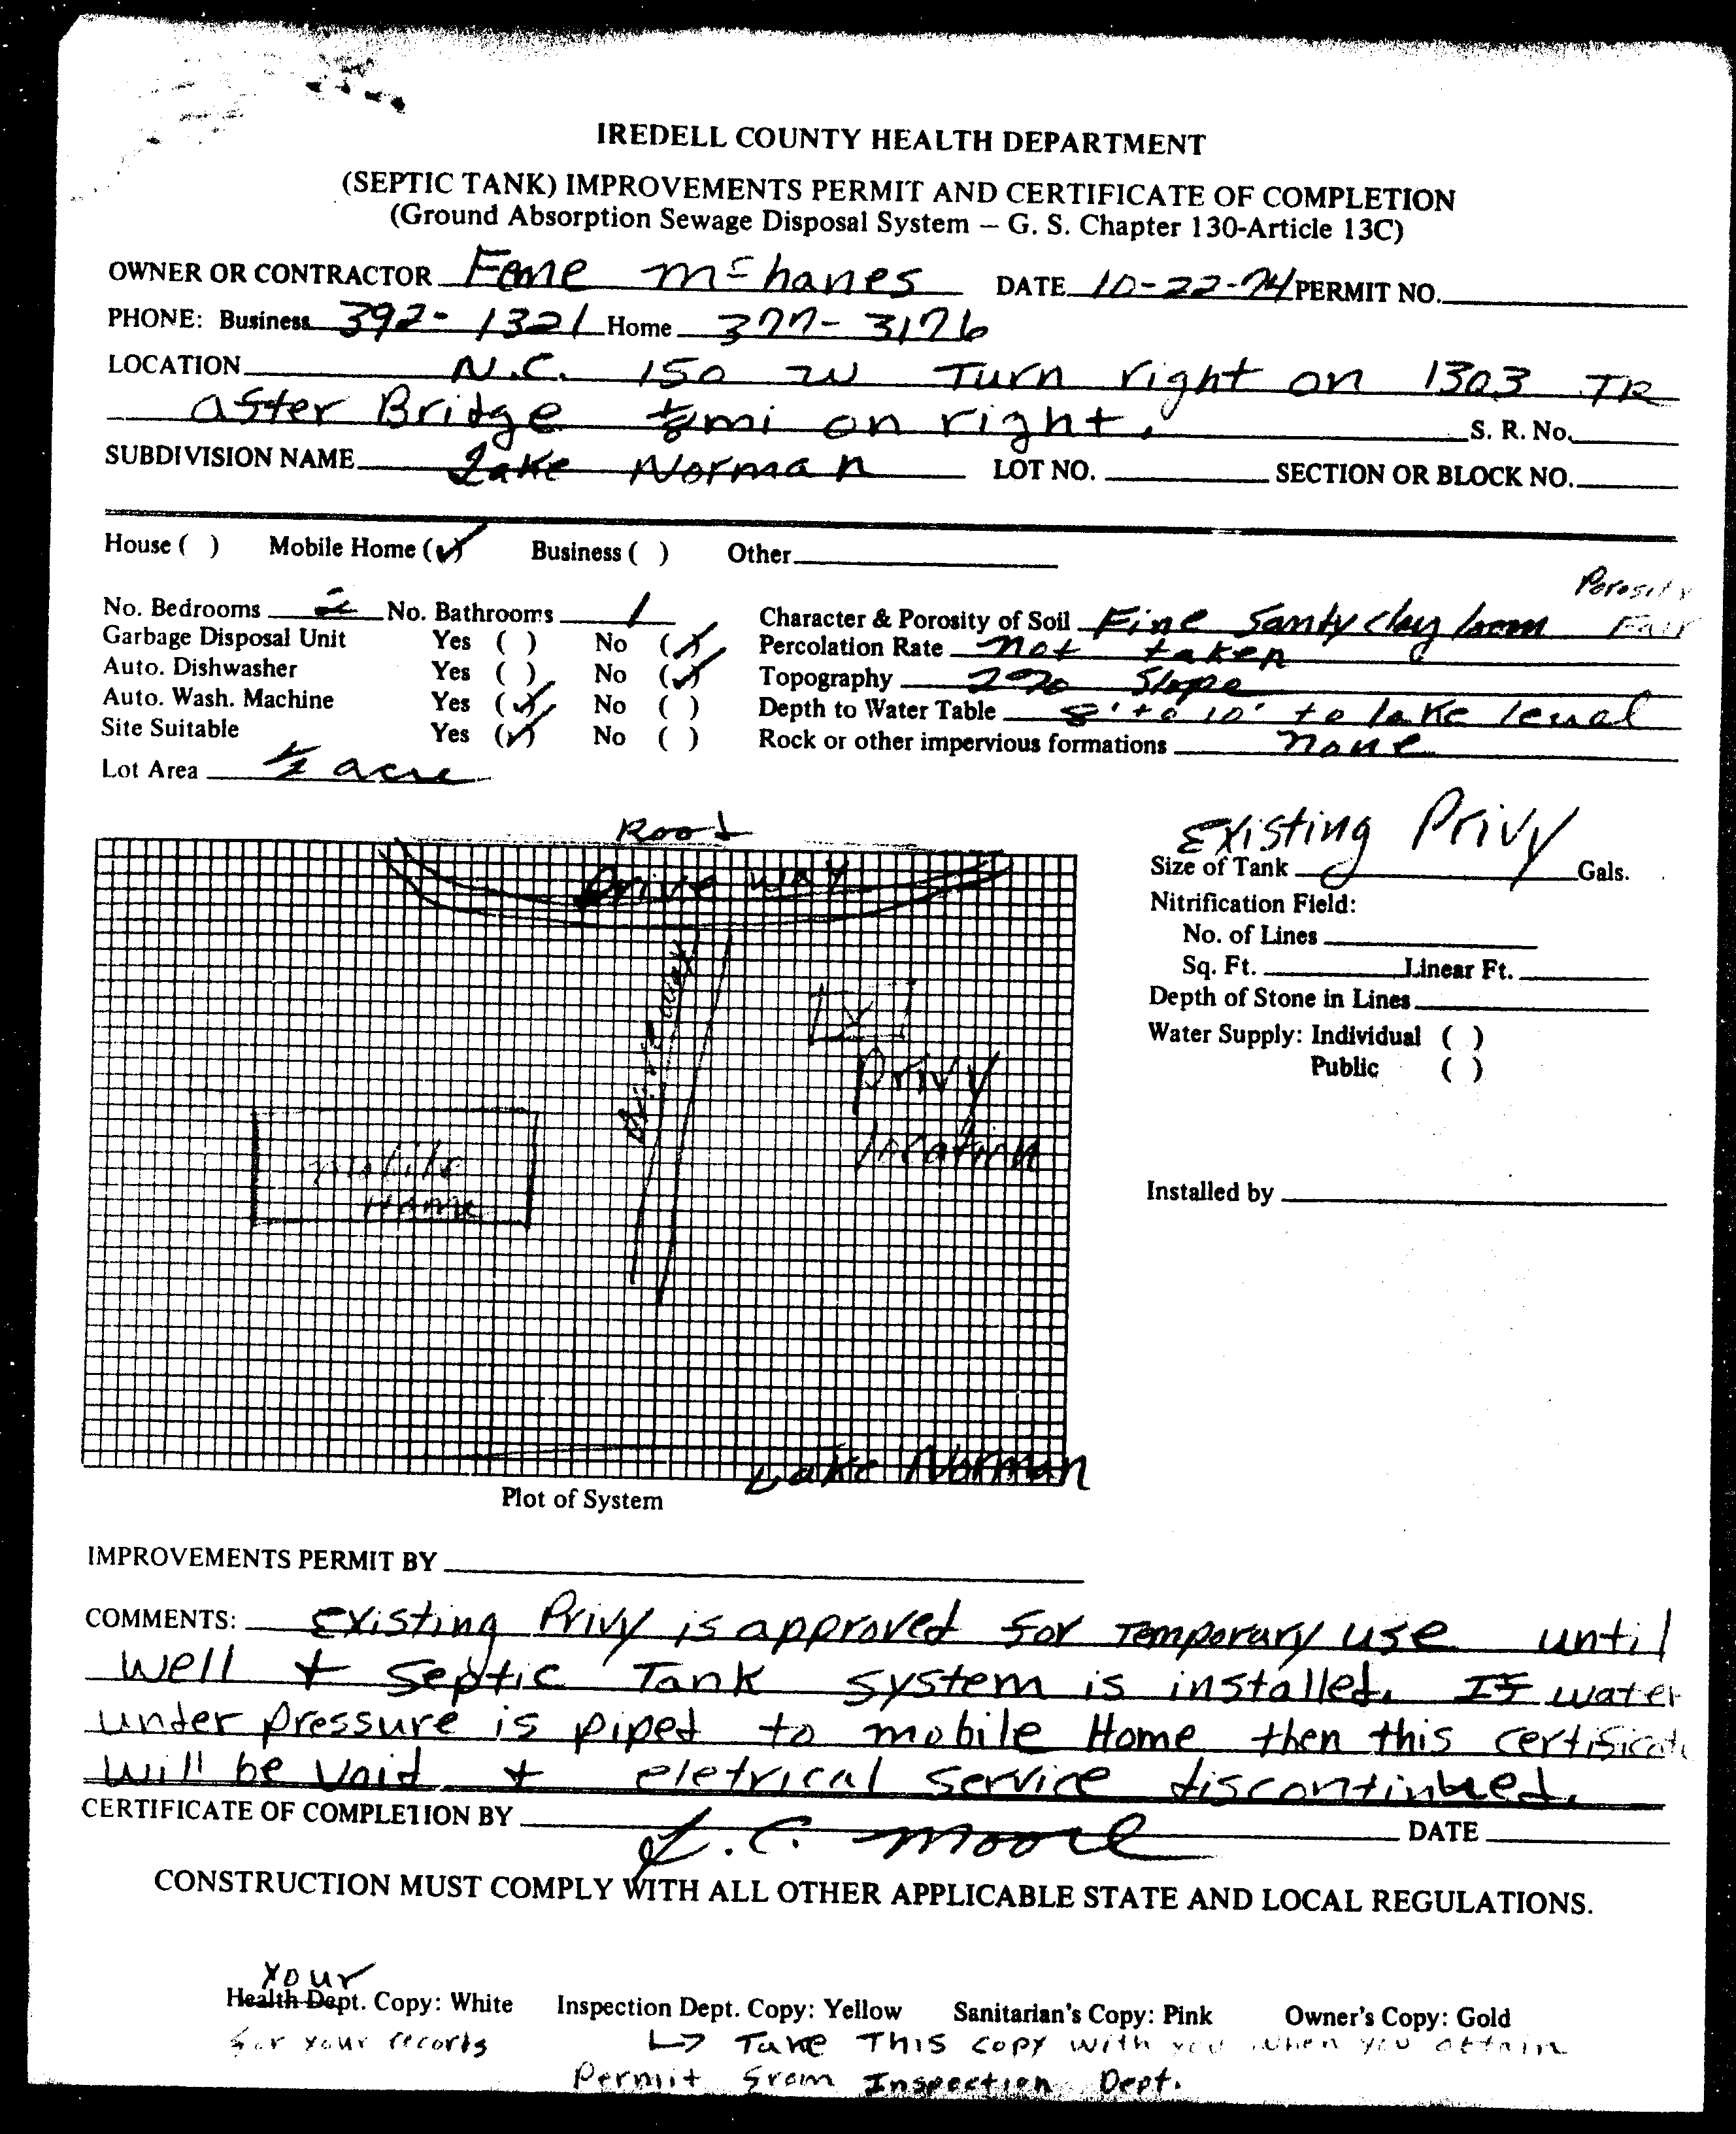 IREDELL COUNTY HEALTH DEPARTMENT
(SEPTIC TANK) IMPROVEMENTS PERMIT AND CERTIFICATE OF COMPLETION
(Ground Absorption Sewage Disposal System – G. S. Chapter 130-Article 13C)
OWNER OR CONTRACTOR DATE 10-22-74 PERMIT NO.
PHONE: Business 392-1321 Home 377-3176
LOCATION N.C. 150 W Turn right on 1303 TR
after Bridge mi on right. S. R. No.
SUBDIVISION NAME Lake Norman LOT NO. SECTION OR BLOCK NO.
House ( ) Mobile Home (✓) Business ( ) Other
Porosity
No. Bedrooms 2 No. Bathrooms 1 Character & Porosity of Soil Fine Sandy clay loam Fair
Garbage Disposal Unit Yes ( ) No (✓) Percolation Rate not taken
Auto. Dishwasher Yes ( ) No (✓) Topography 2% Slope
Auto. Wash. Machine Yes (✓) No ( ) Depth to Water Table 8' to 10' to lake leval
Site Suitable Yes (✓) No ( ) Rock or other impervious formations none
Lot Area ½ acre
Road
Drive way
Drive way
Privy
location
mobile
Home
Lake Norman
Plot of System
Existing Privy
Size of Tank Gals.
Nitrification Field:
No. of Lines
Sq. Ft. Linear Ft.
Depth of Stone in Lines
Water Supply: Individual ( )
Public ( )
Installed by
IMPROVEMENTS PERMIT BY
COMMENTS: Existing Privy is approved for Temporary use until
well + Septic Tank system is installed. If water
under pressure is piped to mobile Home then this certificate
will be Void + eletrical service discontinued.
CERTIFICATE OF COMPLETION BY L.C. Moore DATE
CONSTRUCTION MUST COMPLY WITH ALL OTHER APPLICABLE STATE AND LOCAL REGULATIONS.
Your
Health Dept. Copy: White Inspection Dept. Copy: Yellow Sanitarian's Copy: Pink Owner's Copy: Gold
for your records ↳ Take This copy with you when you obtain
Permit from Inspection Dept.